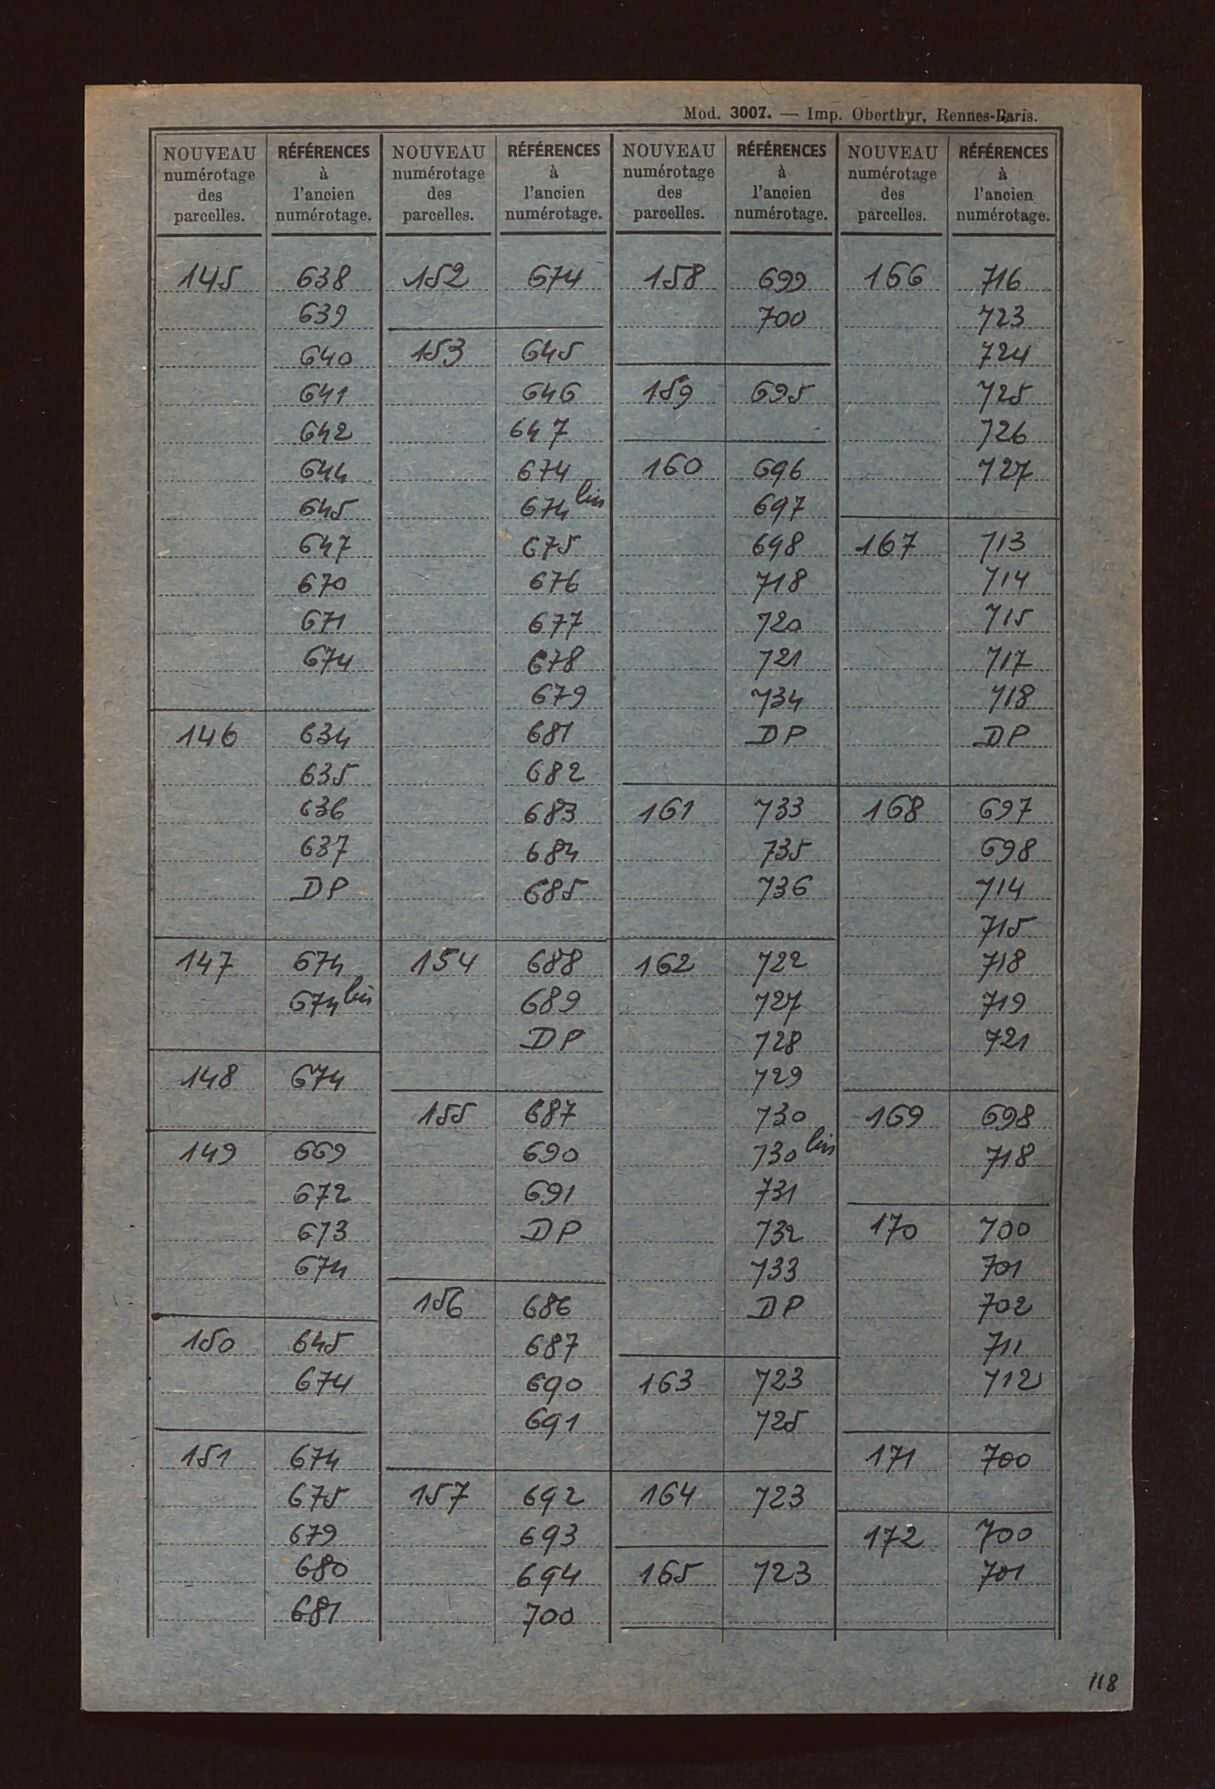 Mod. 3007. — Imp. Oberthur, Rennes-Paris.
NOUVEAU numérotage des parcelles.
RÉFÉRENCES à l'ancien numérotage.
NOUVEAU numérotage des parcelles.
RÉFÉRENCES à l'ancien numérotage.
NOUVEAU numérotage des parcelles.
RÉFÉRENCES à l'ancien numérotage.
NOUVEAU numérotage des parcelles.
RÉFÉRENCES à l'ancien numérotage.
145 638
639
640
641
642
644
645
647
670
671
674
146 634
635
636
637
DP
147 674
674 bis
148 674
149 669
672
673
674
150 645
674
151 674
675
679
680
681
152 674
153 645
646
647
674
674 bis
675
676
677
678
679
681
682
683
684
685
154 688
689
DP
155 687
690
691
DP
156 686
687
690
691
157 692
693
694
700
158 699
700
159 695
160 696
697
698
718
720
721
734
DP
161 733
735
736
162 722
727
728
729
730
730 bis
731
732
733
DP
163 723
725
164 723
165 723
166 716
723
724
725
726
727
167 713
714
715
717
718
DP
168 697
698
714
715
718
719
721
169 698
718
170 700
701
702
711
712
171 700
172 700
701
118